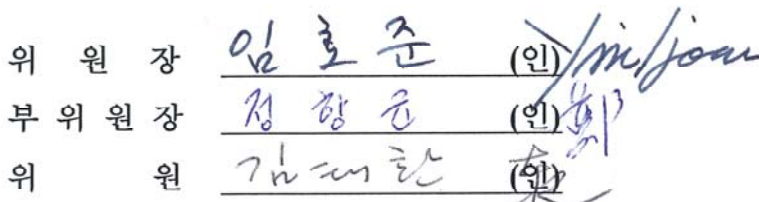 위 원 장 임 호 준 (인)
부 위 원 장 정 향 균 (인) 鄭
위 원 김 태 환 (인)